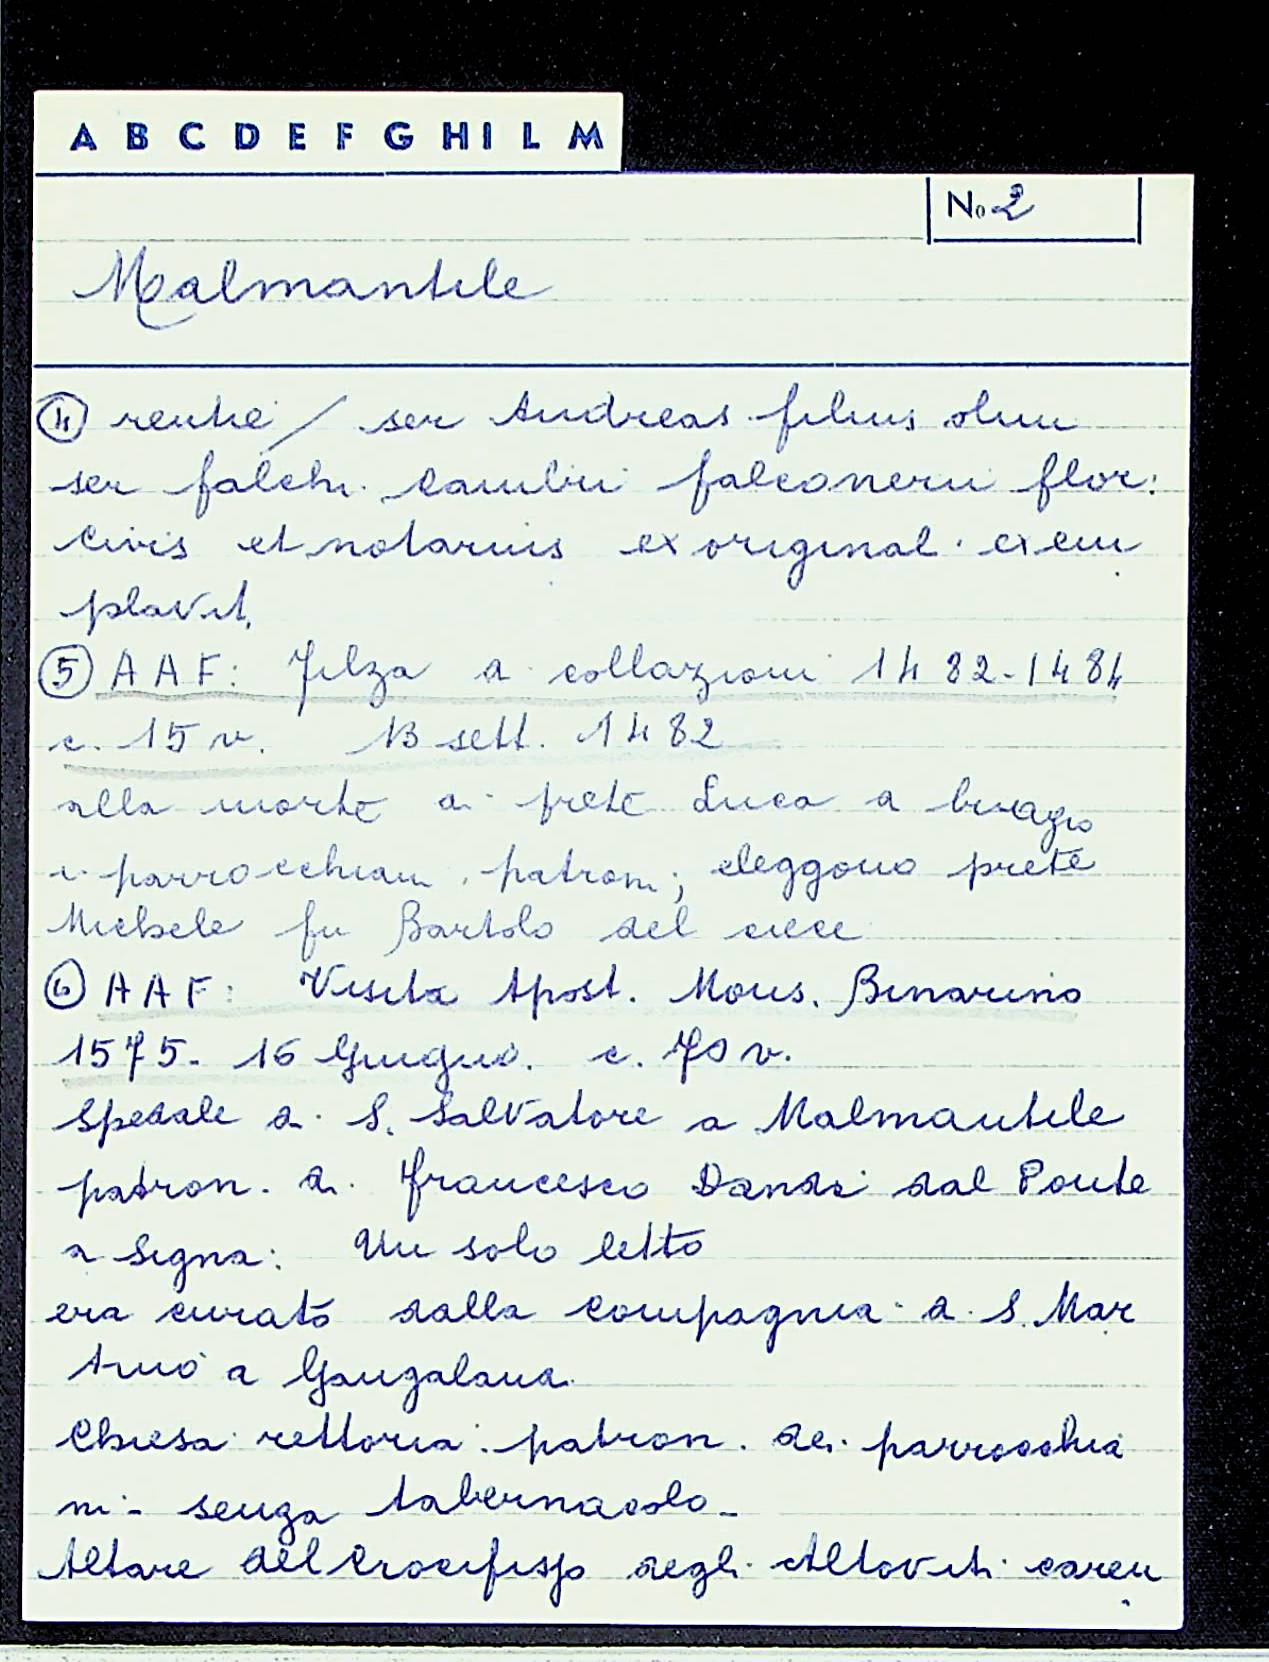 A B C D E F G H I L M
No 2
Malmantile
④ renhe / ser Andreas filius olim
ser falchi. Cambii falconerii flor:
civis et notarius ex original. exem
plavit.
⑤ AAF: Filza di collazioni 1482-1484
c. 15 v. 13 sett. 1482
alla morte di prete Luca a
i parrocchiani patroni; eleggono prete
Michele fu Bartolo del
⑥ AAF: Visita Apost. Mons. Binarino
1575- 16 Giugno. c. 70 v.
Spedale di S. Salvatore a Malmantile
patron. di Francesco Dandi dal Ponte
a Signa: Un solo letto
era curato dalla Compagnia di S. Mar
tino a Gangalana.
Chiesa rettoria: patron. dei parrocchia
ni- senza tabernacolo-
Altare del Crocifisso degli Altoviti caren